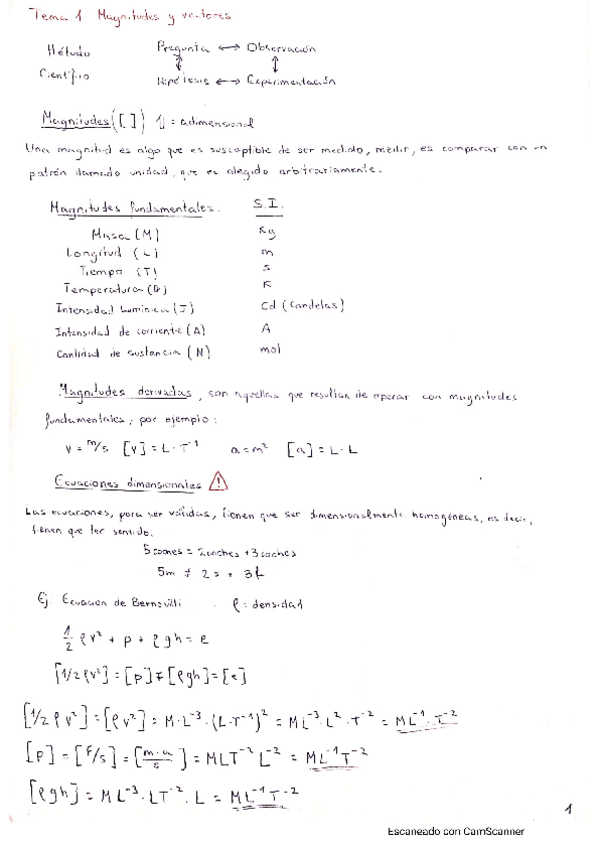 Tema 1 Magnitudes y vectores
Método Pregunta ↔ Observación
Científico Hipótesis ↔ Experimentación
Magnitudes ([ ]) 1 = adimensional
Una magnitud es algo que es susceptible de ser medido, medir, es comparar con un
patrón llamado unidad, que es elegido arbitrariamente.
Magnitudes fundamentales. S.I.
Masa (M) Kg
Longitud (L) m
Tiempo (T) s
Temperatura (θ) K
Intensidad lumínica (J) Cd (Candelas)
Intensidad de corriente (A) A
Cantidad de sustancia (N) mol
Magnitudes derivadas, son aquellas que resultan de operar con magnitudes
fundamentales, por ejemplo:
v = m/s [v] = L · T⁻¹ a = m² [a] = L · L
Ecuaciones dimensionales ⚠
Las ecuaciones, para ser válidas, tienen que ser dimensionalmente homogéneas, es decir,
tienen que tener sentido.
5 coches = 2 coches + 3 coches
5m ≠ 2s + 3
Ej. Ecuación de Bernouilli . ρ = densidad
1/2 ρv² + p + ρgh = e
[1/2 ρv²] = [p] = [ρgh] = [e]
[1/2 ρv²] = [ρv²] = M·L⁻³·(L·T⁻¹)² = ML⁻³·L²·T⁻² = ML⁻¹·T⁻²
[p] = [F/s] = [m·a/s] = MLT⁻² L⁻² = ML⁻¹T⁻²
[ρgh] = ML⁻³·LT⁻²·L = ML⁻¹T⁻²
1
Escaneado con CamScanner